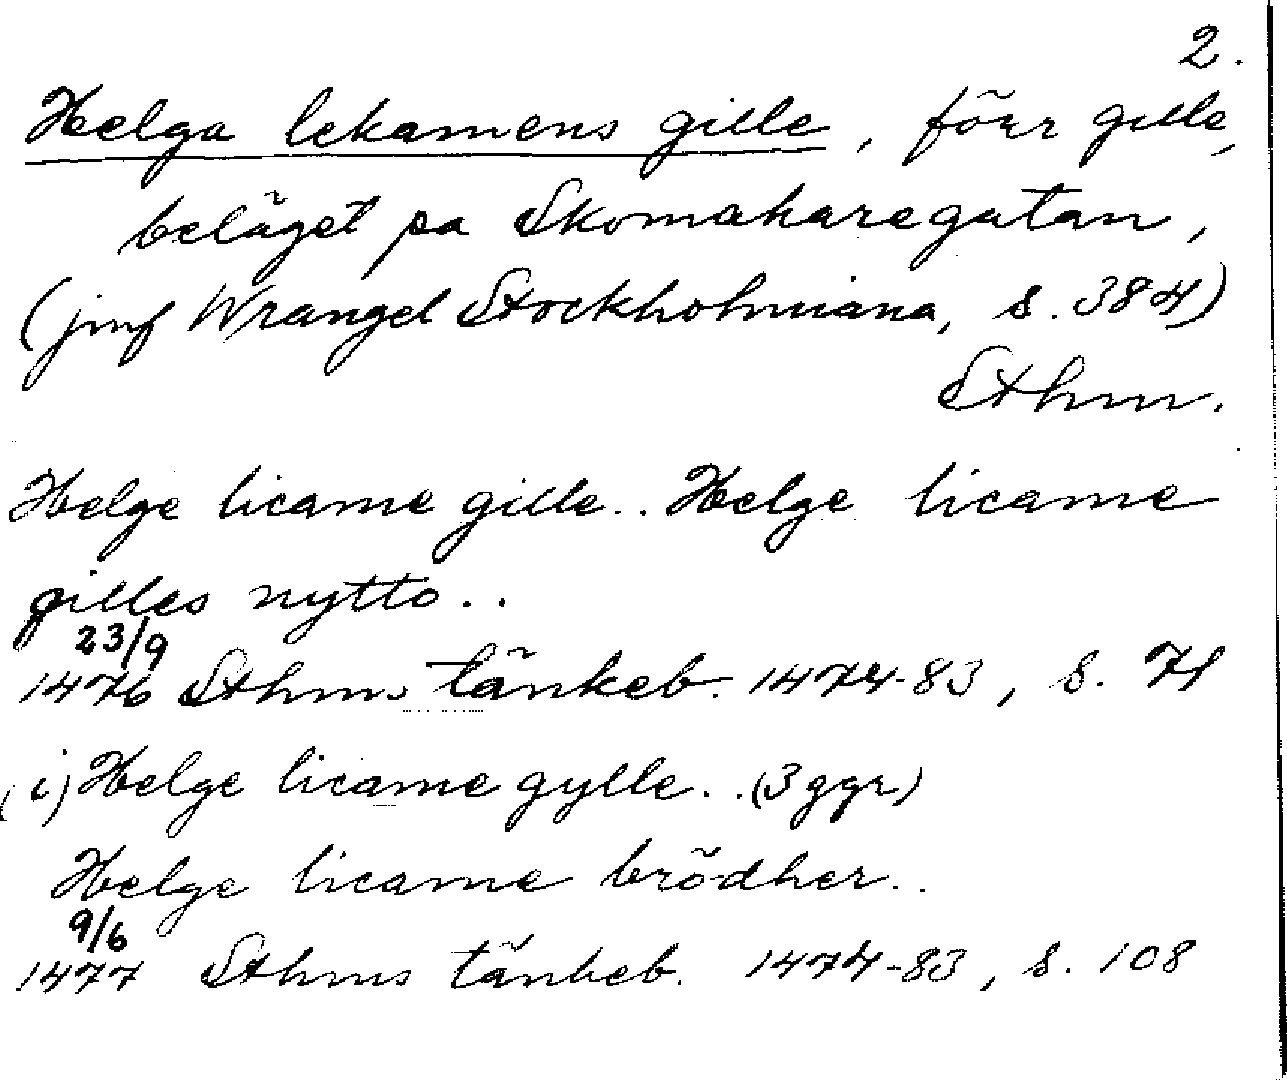 2.
Helga lekamens gille, förr gille,
beläget på Skomakaregatan,
(jmf Wrangel Stockholmiana, s. 384)
Sthm.
Helge licame gille.. Helge licame
gilles nytto..
23/9
1476 Sthms tänkeb. 1474-83, s. 71
(i) Helge licame gylle.. (3 ggr)
Helge licame brödher..
9/6
1477 Sthms tänkeb. 1474-83, s. 108